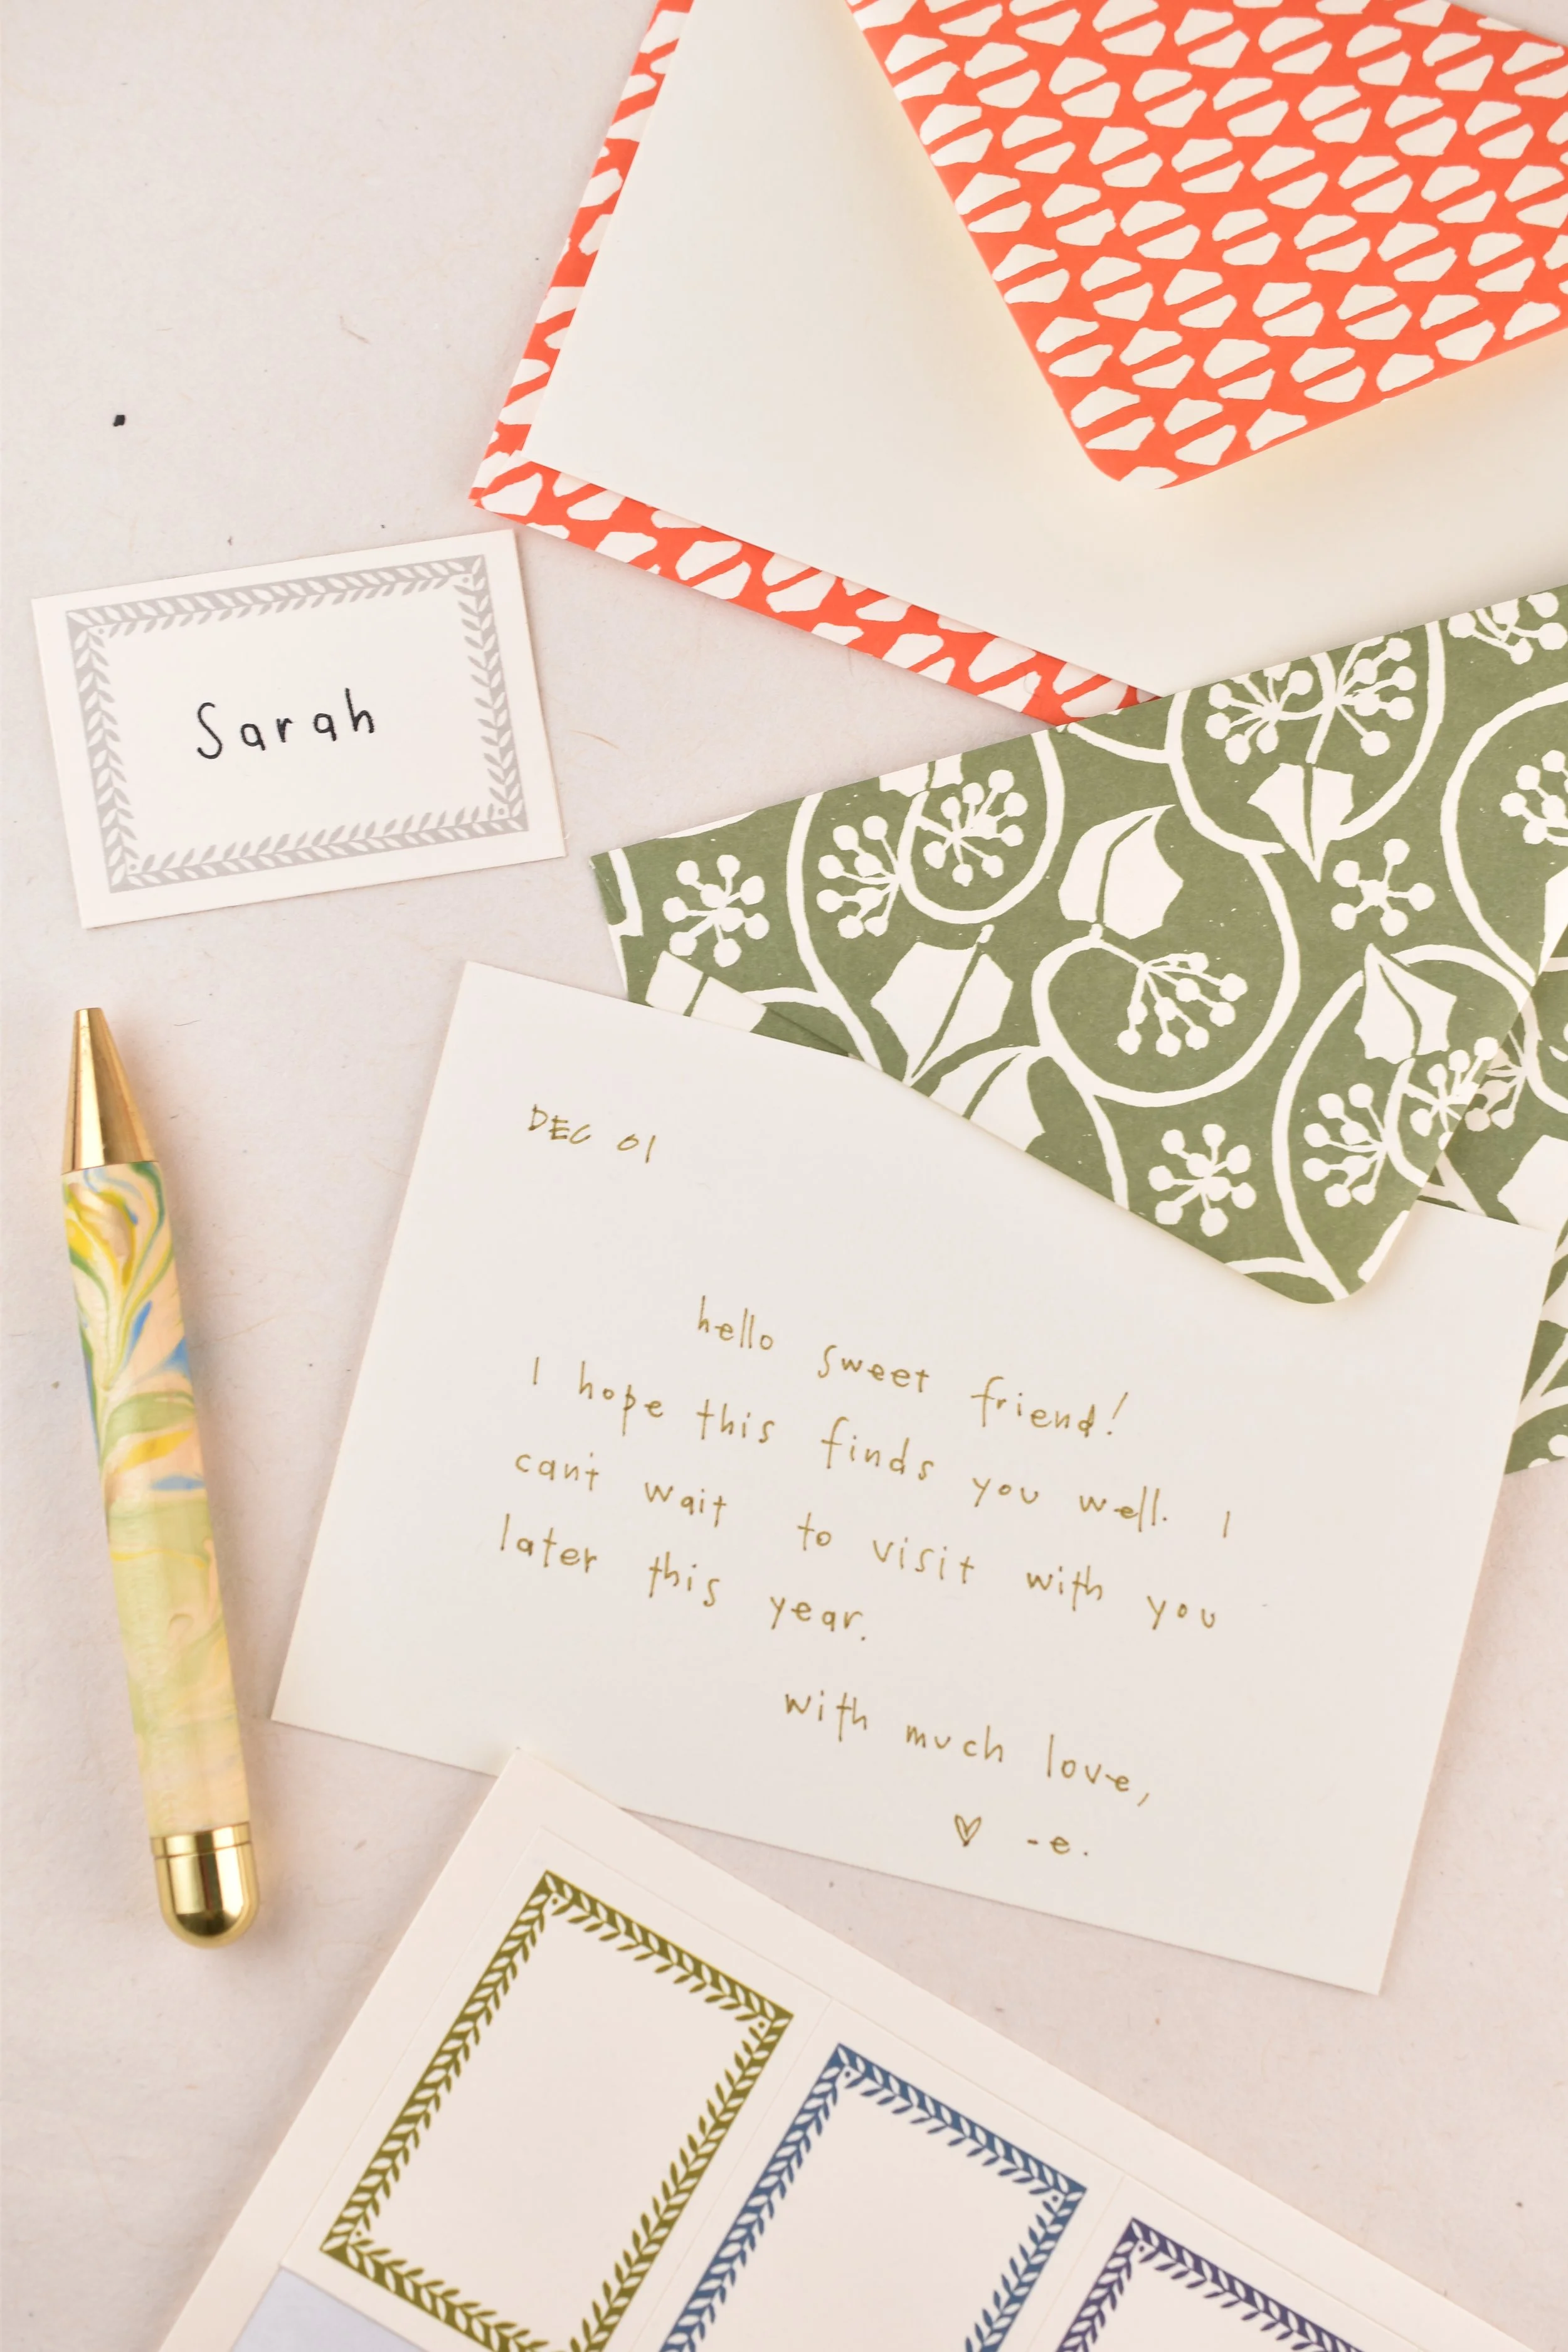 Sarah
DEC 01
hello sweet friend!
I hope this finds you well. I
can't wait to visit with you
later this year.
with much love,
♡ -e.